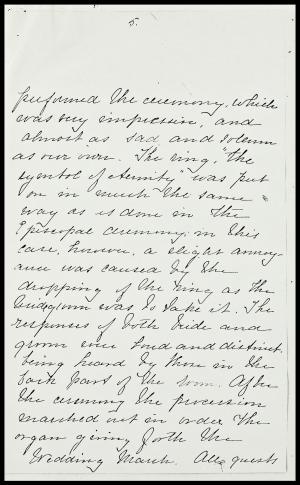 5.
performed the ceremony, which
was very impressive, and
almost as sad and solemn
as our own. The ring, "the
symbol of eternity" was put
on in much the same
way as is done in the
Episcopal ceremony; in this
case, however, a slight annoy-
ance was caused by the
dropping of the ring as the
bridegroom was to take it. The
responses of both bride and
groom were loud and distinct,
being heard by those in the
back part of the room. After
the ceremony the procession
marched out in order the
organ giving forth the
Wedding March. All guests